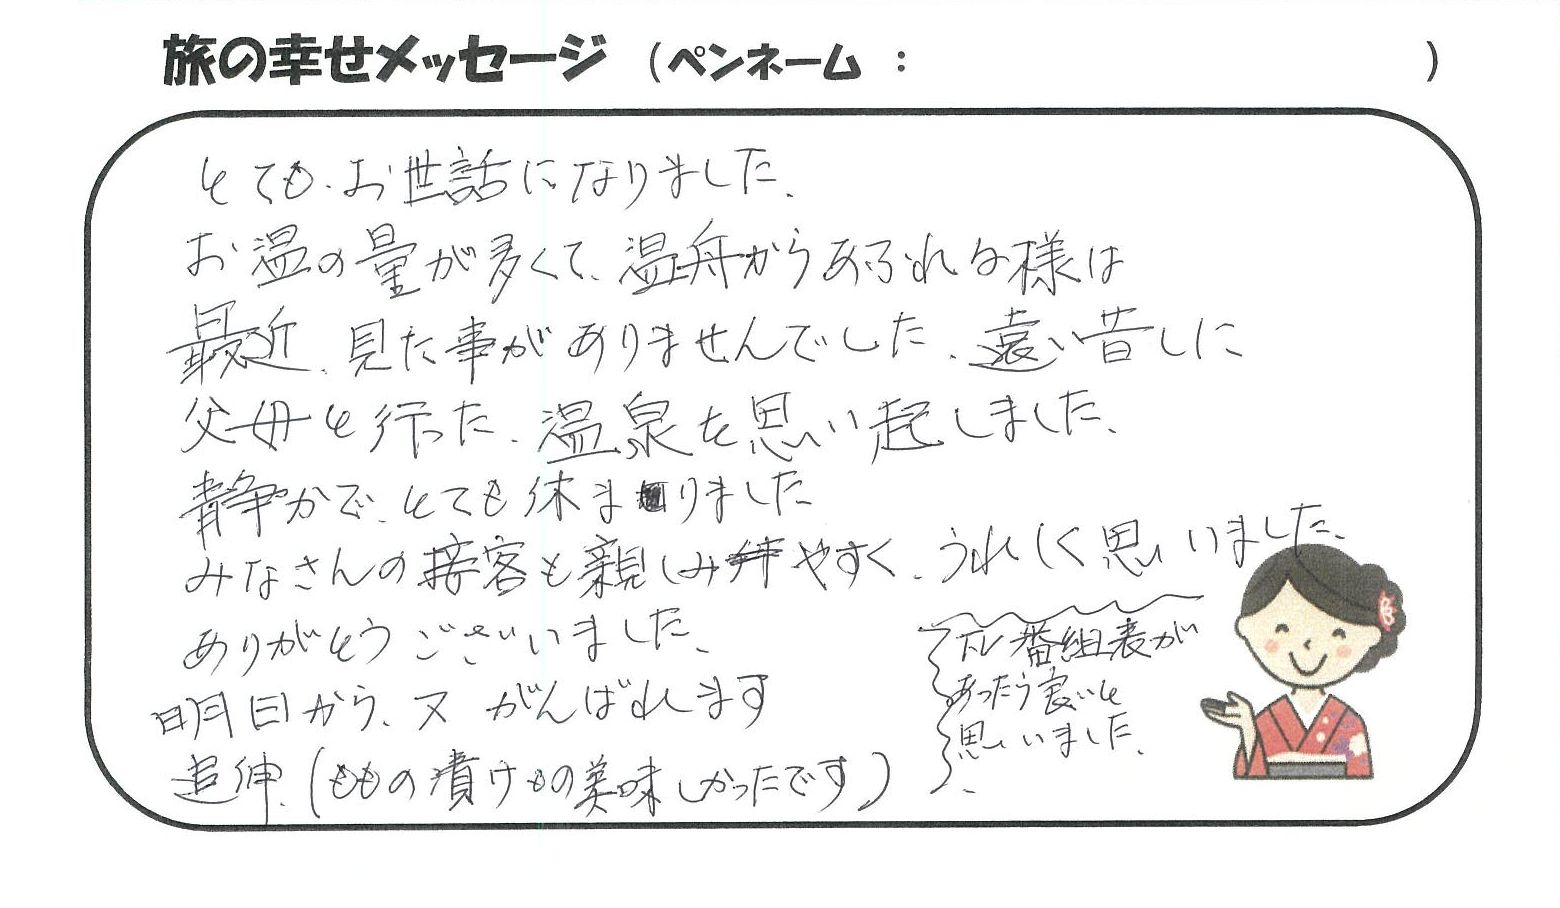 旅の幸せメッセージ (ペンネーム : )
とても、お世話になりました、
お温の量が多くて、温舟からあふれる様は
最近、見た事がありませんでした、遠い昔しに
父母と行った、温泉を思い起しました、
静かで、とても休まりました
みなさんの接客も親しみやすく、うれしく思いました、
ありがとうございました、
明日から、又 がんばれます
追伸、(ももの漬けもの美味しかったです)
TV番組表が
あったら良いと
思いました、